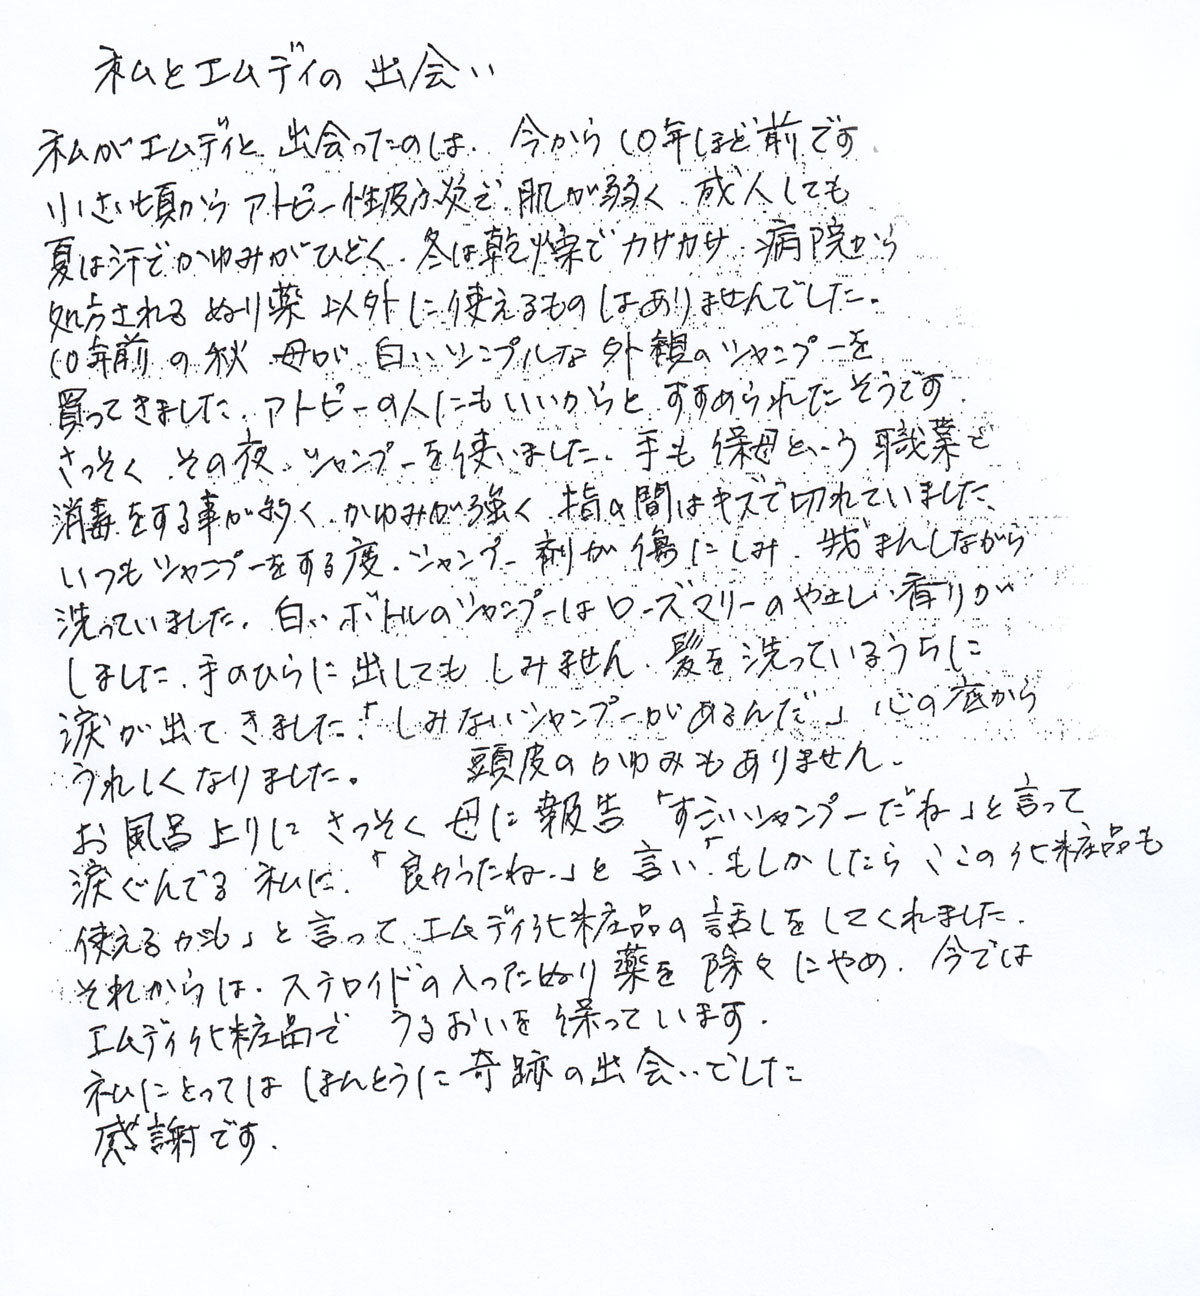 私とエムディの出会い
私がエムディと出会ったのは、今から10年ほど前です。
小さい頃からアトピー性皮ふ炎で、肌が弱く、成人しても
夏は汗でかゆみがひどく、冬は乾燥でカサカサ、病院から
処方されるぬり薬以外に使えるものはありませんでした。
10年前の秋、母が、白いシンプルな外観のシャンプーを
買ってきました。アトピーの人にもいいからと、すすめられたそうです。
さっそく、その夜、シャンプーを使いました。手も保母という職業で
消毒をする事が多く、かゆみが強く、指の間はキズで切れていました。
いつもシャンプーをする度、シャンプー剤が傷にしみ、まんしながら
洗っていました。白いボトルのシャンプーはローズマリーのやさしい香りが
しました。手のひらに出してもしみません。髪を洗っているうちに
涙が出てきました。「しみないシャンプーがあるんだ」心の底から
うれしくなりました。 頭皮のかゆみもありません。
お風呂上りにさっそく母に報告「すごいシャンプーだね」と言って
涙ぐんでる私に、「良かったね。」と言い「もしかしたら、この化粧品も
使えるかも」と言ってエムディ化粧品の話しをしてくれました。
それからは、ステロイドの入ったぬり薬を除々にやめ、今では
エムディ化粧品でうるおいを保っています。
私にとってはほんとうに奇跡の出会いでした
感謝です。